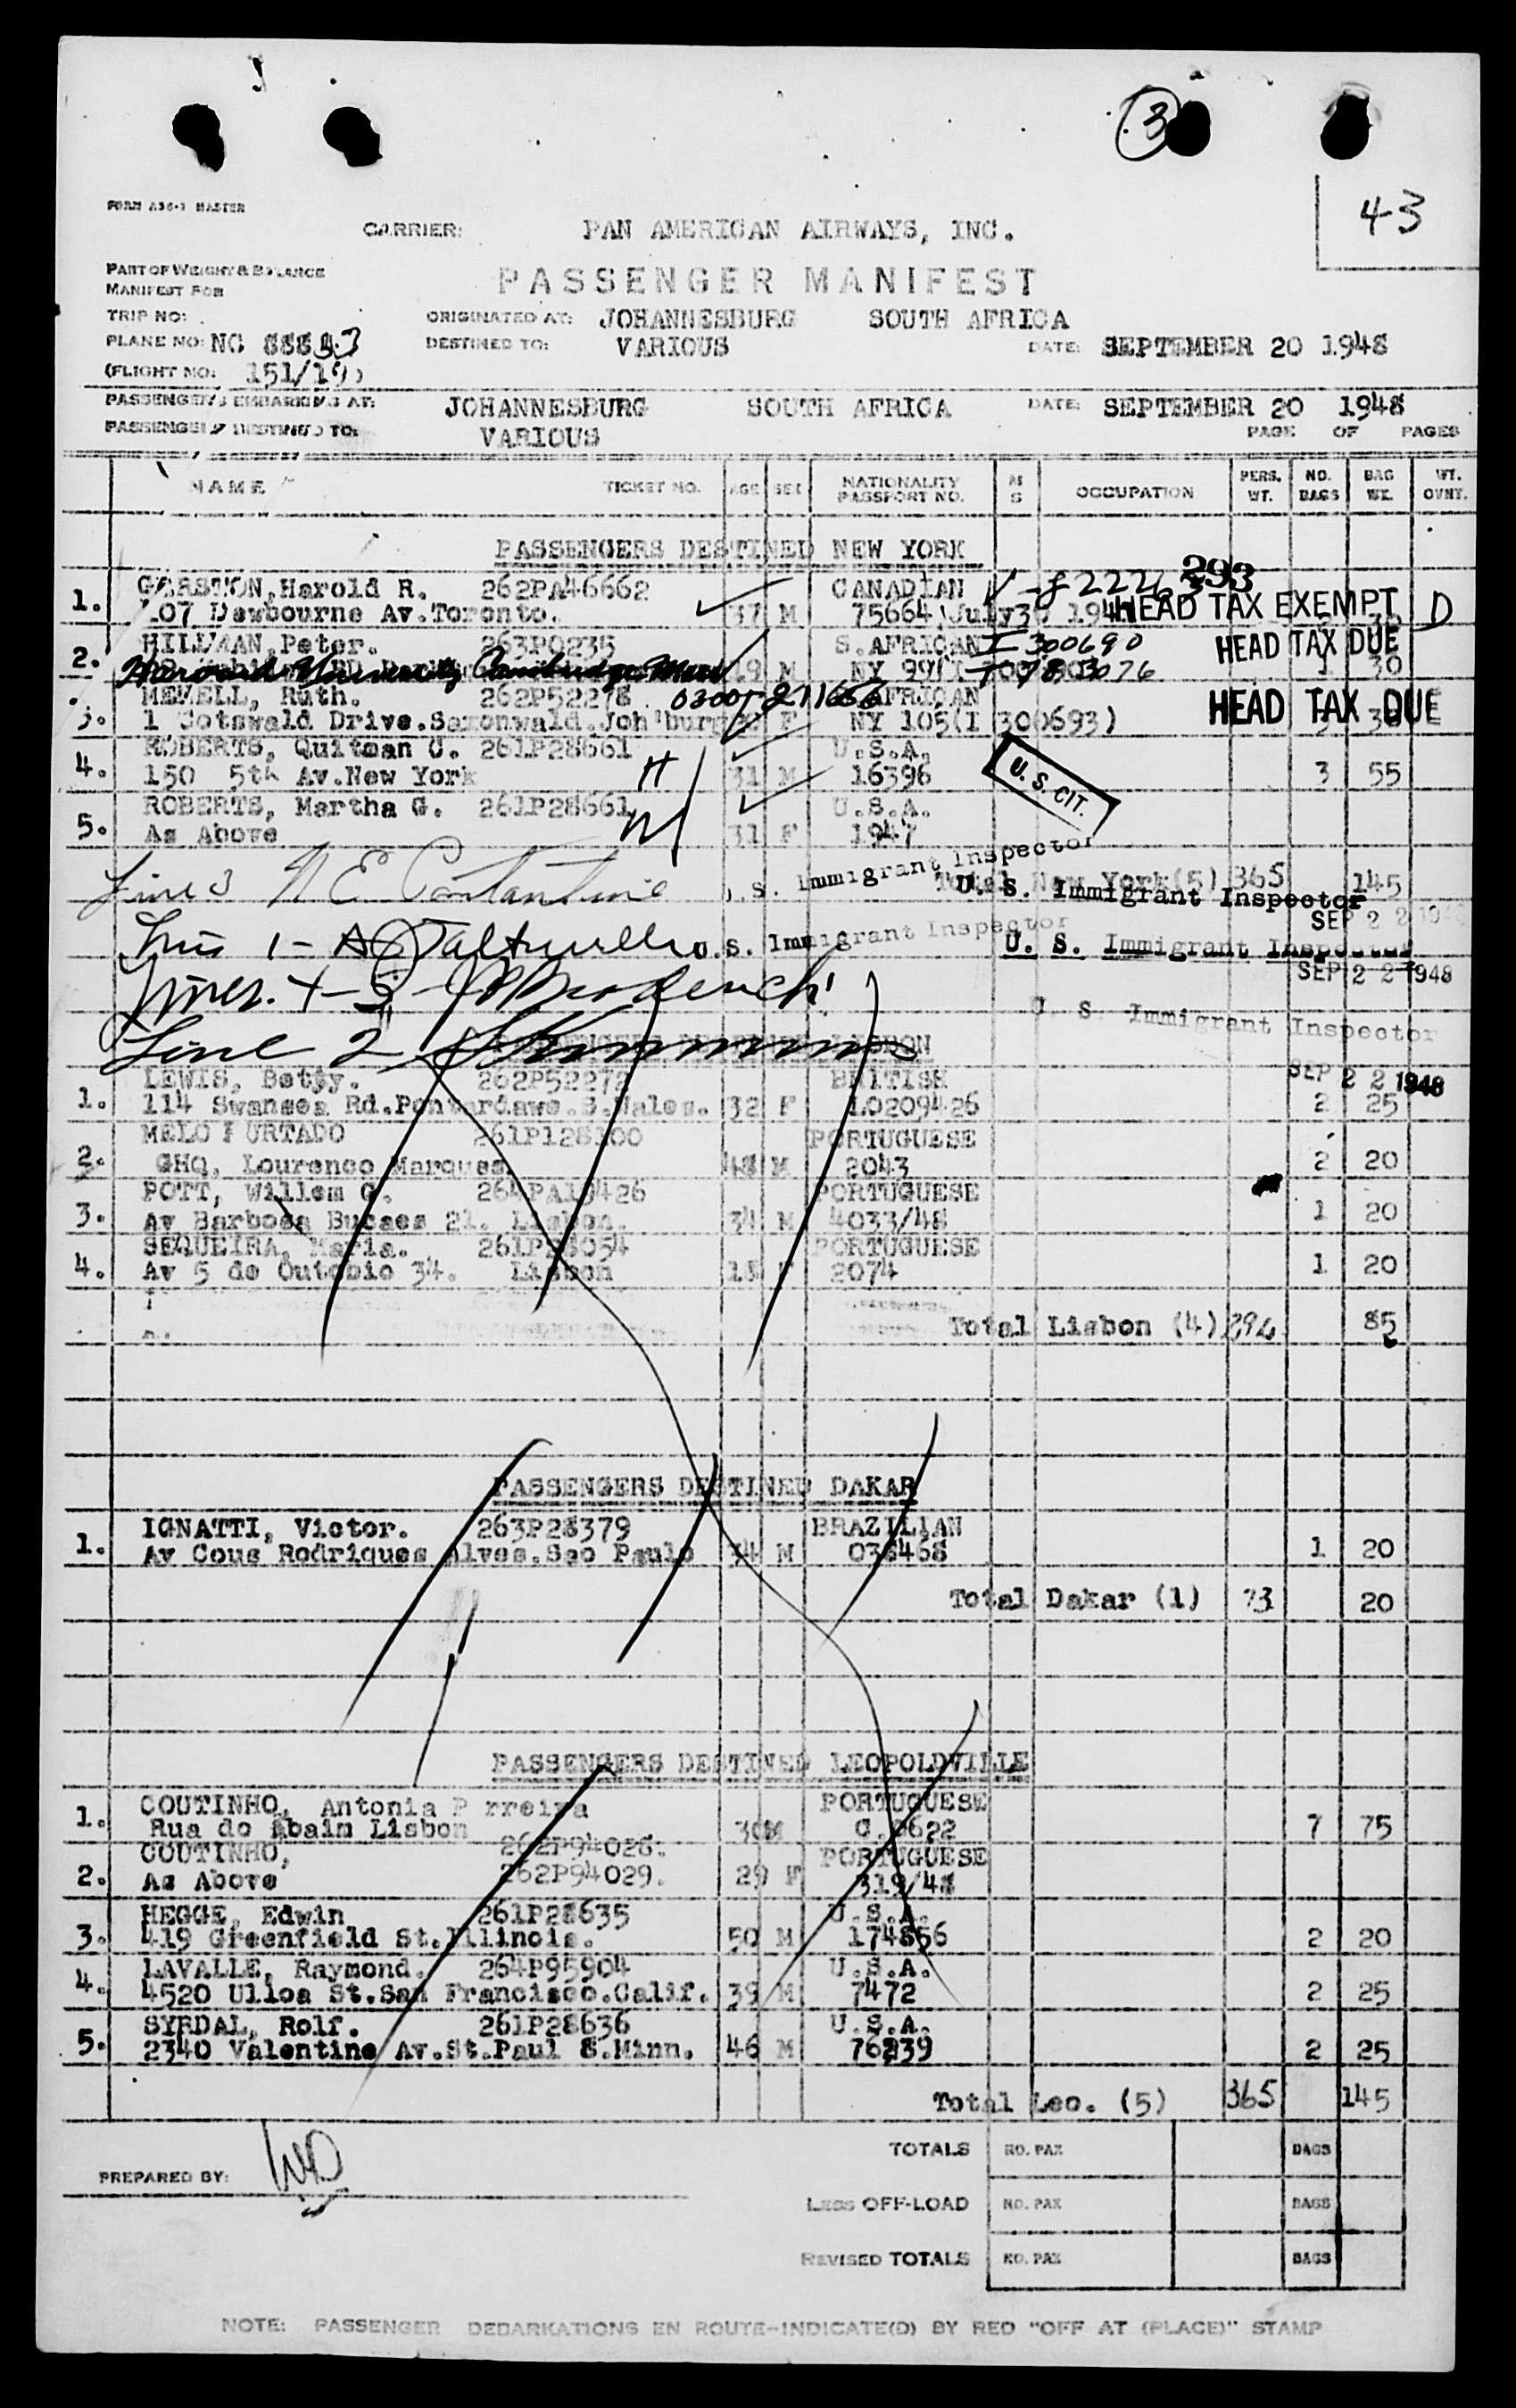 3
43
FORM A36-1 MASTER
CARRIER: PAN AMERICAN AIRWAYS, INC.
PART OF WEIGHT & BALANCE
MANIFEST FOR
PASSENGER MANIFEST
TRIP NO:
ORIGINATED AT: JOHANNESBURG SOUTH AFRICA
PLANE NO: NC
DESTINED TO: VARIOUS DATE: SEPTEMBER 20 1948
(FLIGHT NO: 151/
PASSENGERS EMBARKING AT: JOHANNESBURG SOUTH AFRICA DATE: SEPTEMBER 20 1948
PASSENGERS DESTINED TO: VARIOUS
PAGE OF PAGES
NAME TICKET NO. AGE SEX NATIONALITY PASSPORT NO. OCCUPATION PERS. WT. NO. BAGS BAG WT. WT. OVNT.
PASSENGERS DESTINED NEW YORK
293
1. Harold R. 262PA46662 CANADIAN
107 Dewbourne Av.Toronto. 37 M 75664 HEAD TAX EXEMPT D
2. HILLMAN, Peter. 263P0235 S.AFRICAN I 300690 HEAD TAX DUE
Harvard University Cambridge Mass 19 M NY 1 30
3. MEWELL, Ruth. 262P52278 AFRICAN
1 Cotswald Drive.Saxonwald.Joh'burg F NY 105(I 300693) HEAD TAX DUE
4. ROBERTS, Quitman C. 261P28661 U.S.A.
150 5th Av.New York H 31 M 16396 U. S. CIT. 3 55
5. ROBERTS, Martha G. 261P28661 U.S.A.
As Above 31 F 1947
U. S. Immigrant Inspector
Line 3
Total New York(5) 365 145
U. S. Immigrant Inspector
SEP 2 2 1948
Line 1 -
U. S. Immigrant Inspector
U. S. Immigrant Inspector
SEP 2 2 1948
Lines 4-5
U. S. Immigrant Inspector
Line 2
PASSENGERS DESTINED LISBON
SEP 2 2 1948
1. LEWIS, Betty. 262P52272 BRITISH
114 Swansea Rd.Pontardawe.S.Wales. 32 F L0209426 2 25
2. MELO FURTADO PORTUGUESE
GHQ, Lourenco Marques. 48 M 2043 2 20
3. POTT, Willem G. PORTUGUESE
Av Barbosa Bucaes 21. Lisbon. 34 M 4033/48 1 20
4. SEQUEIRA, Maria. PORTUGUESE
Av 5 de Outobio 34. Lisbon 18 F 2074 1 20
Total Lisbon (4) 294 85
PASSENGERS DESTINED DAKAR
1. IGNATTI, Victor. 263P28379 BRAZILIAN
Av Cous Rodriques Alves.Sao Paulo 34 M 038468 1 20
Total Dakar (1) 73 20
PASSENGERS DESTINED LEOPOLDVILLE
1. COUTINHO, Antonia P rreira PORTUGUESE
Rua do Abaim Lisbon 30 M 7 75
262P94028.
2. COUTINHO, PORTUGUESE
As Above 262P94029. 29 F 319/48
3. HEGGE, Edwin 261P28635 U.S.A.
419 Greenfield St.Illinois. 50 M 174856 2 20
4. LAVALLE, Raymond. 264P95904 U.S.A.
4520 Ulloa St.San Francisco.Calif. 39 M 7472 2 25
5. SYRDAL, Rolf. 261P28636 U.S.A.
2340 Valentine Av.St.Paul 8.Minn. 46 M 76239 2 25
Total Leo. (5) 365 145
TOTALS NO. PAX BAGS
PREPARED BY:
LESS OFF-LOAD NO. PAX BAGS
REVISED TOTALS NO. PAX BAGS
NOTE: PASSENGER DEBARKATIONS EN ROUTE-INDICATE(D) BY RED "OFF AT (PLACE)" STAMP